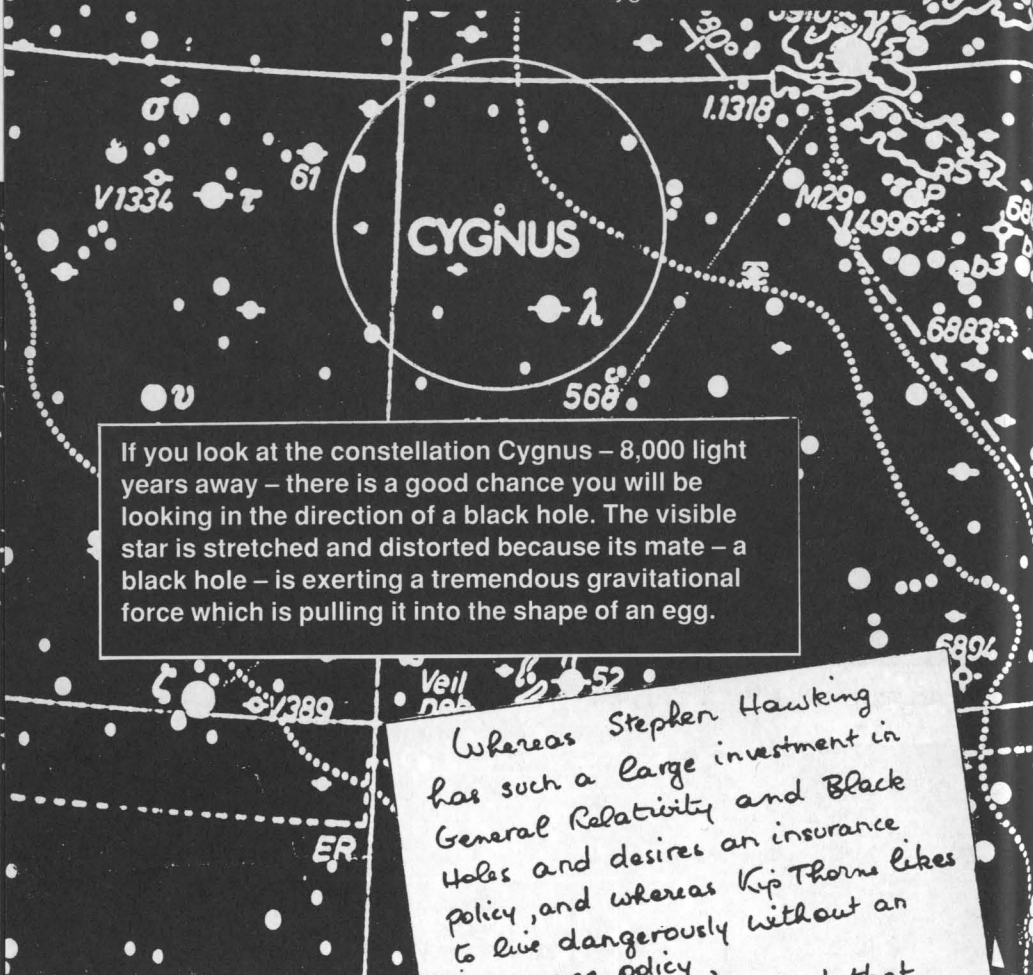 I.1318
σ
61
V1334
τ
M29
P
RS
4996
68
CYGNUS
b3
λ
6883
568
υ
If you look at the constellation Cygnus – 8,000 light
years away – there is a good chance you will be
looking in the direction of a black hole. The visible
star is stretched and distorted because its mate – a
black hole – is exerting a tremendous gravitational
force which is pulling it into the shape of an egg.
6894
ζ
Veil
52
V389
ER
Whereas Stephen Hawking
has such a large investment in
General Relativity and Black
Holes and desires an insurance
policy, and whereas Kip Thorne likes
to live dangerously without an
policy,
that